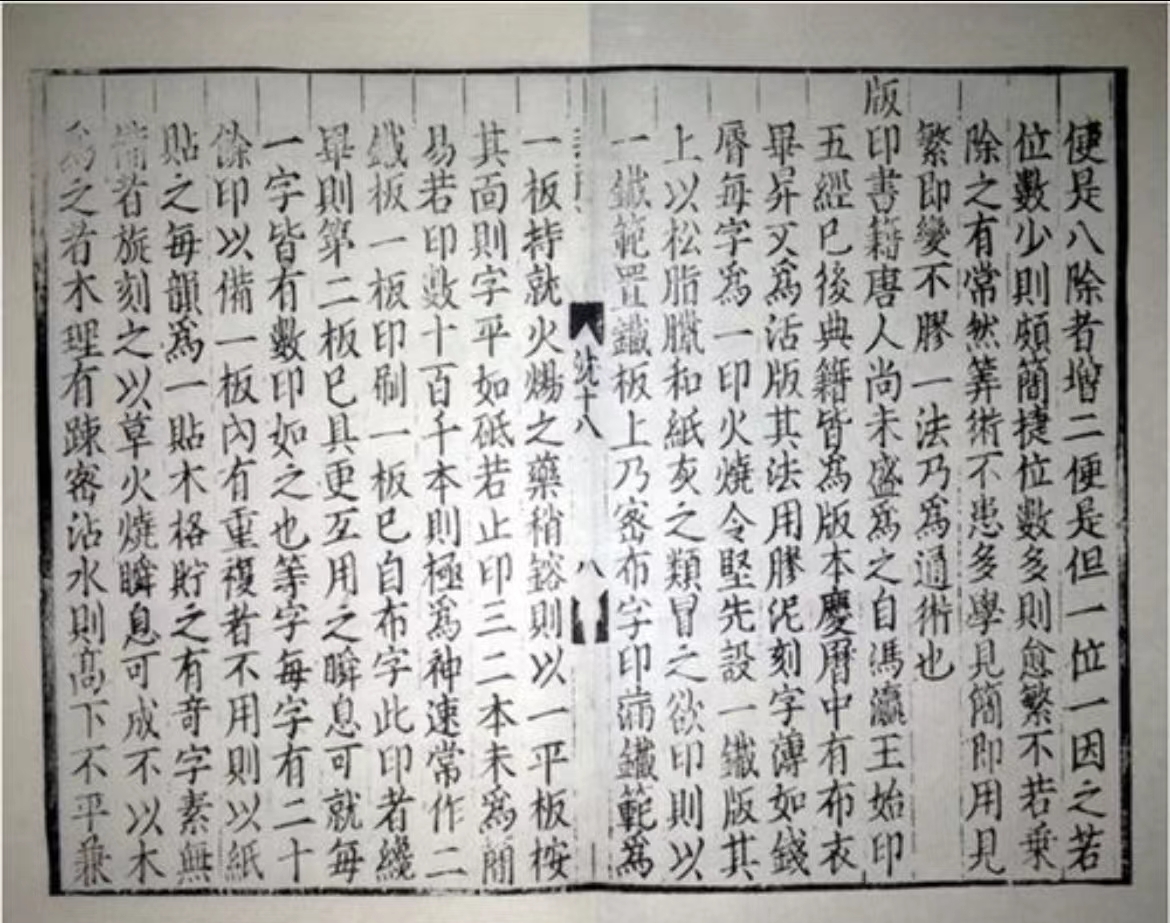 便是八除者增二便是但一位一因之若
位數少則頗簡捷位數多則愈繁不若乗
除之有常然筭術不患多學見簡即用見
繁即變不膠一法乃為通術也
版印書籍唐人尚未盛為之自馮瀛王始印
五經已後典籍皆為版本慶曆中有布衣
畢昇又為活版其法用膠泥刻字薄如錢
脣每字為一印火燒令堅先設一鐵版其
上以松脂臘和紙灰之類冒之欲印則以
一鐵範置鐵板上乃密布字印滿鐵範為
沈十八
八
一板持就火煬之藥稍鎔則以一平板桉
其面則字平如砥若止印三二本未為簡
易若印數十百千本則極為神速常作二
鐵板一板印刷一板已自布字此印者纔
畢則第二板已具更互用之瞬息可就每
一字皆有數印如之也等字每字有二十
餘印以備一板內有重複者不用則以紙
貼之每韻為一貼木格貯之有竒字素無
備者旋刻之以草火燒瞬息可成不以木
為之者木理有踈密沾水則高下不平兼